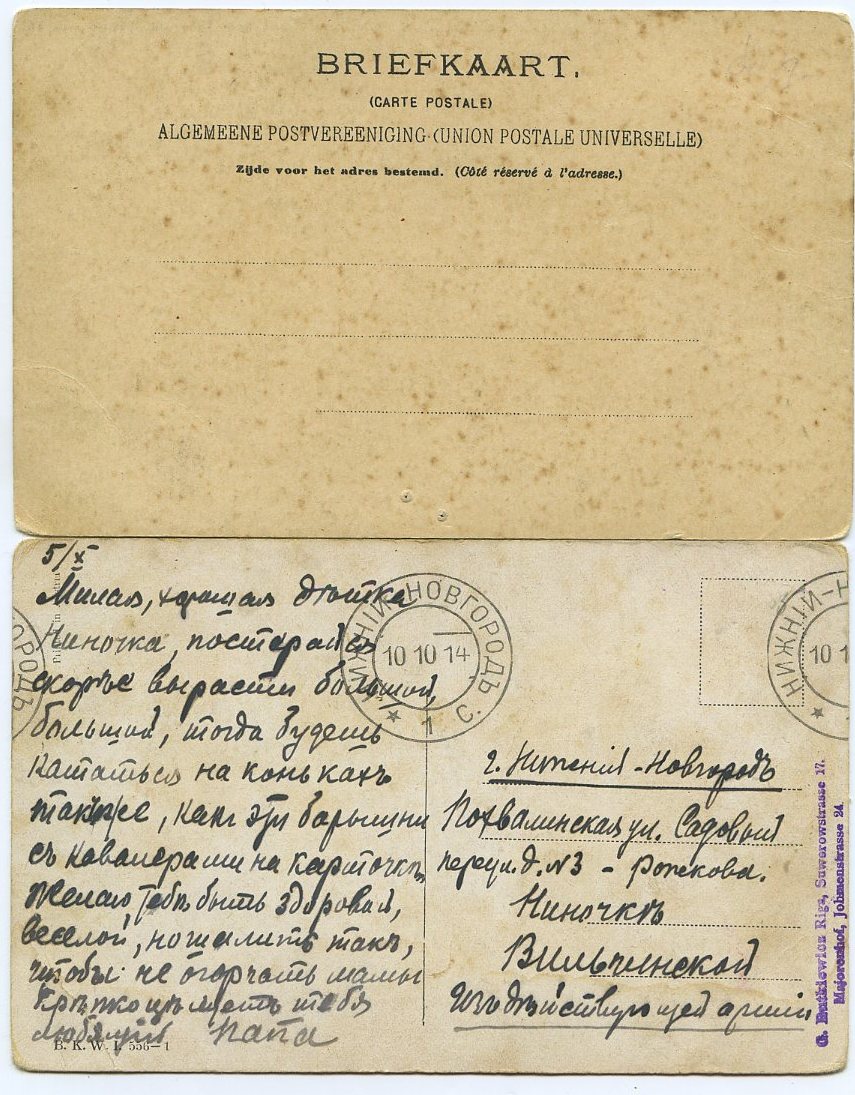 BRIEFKAART.
(CARTE POSTALE)
ALGEMEENE POSTVEREENIGING (UNION POSTALE UNIVERSELLE)
Zijde voor het adres bestemd. (Côté réservé à l'adresse.)
5/X
Милая, хорошая дѣтка
Ниночка, постарайся
скорѣе вырасти большой,
большой, тогда будешь
кататься на конькахъ
также, какъ эти барышни
съ кавалерами на карточкѣ.
Желаю тебѣ быть здоровой,
веселой, но шалить такъ,
чтобы не огорчать мамы
Крѣпко цѣлуетъ тебя
любящій папа
B. K. W. I. 556-1
НИЖНІЙ-НОВГОРОДЪ
10 10 14
1 С.
НИЖНІЙ-Н
10 1
ОРОДЪ
г. Нижній-Новгородъ
Похвалинская ул. Садовый
переул. д. №3 - Рожкова.
Ниночкѣ
Вильчинской
Изъ дѣйствующей арміи
G. Butkiewicz Riga, Suworowstrasse 17.
Majorenhof, Johmenstrasse 24.